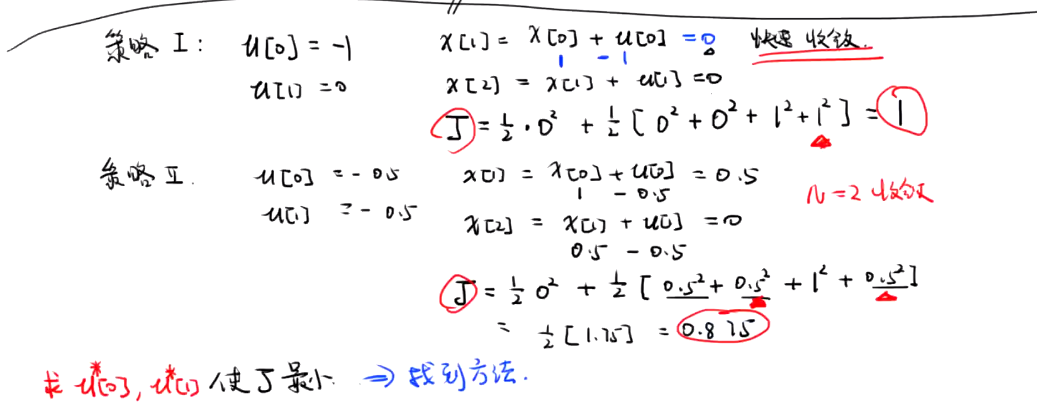 策略 I: u[0] = -1 x[1] = x[0] + u[0] = 0 快速 收敛.
1 -1
u[1] = 0 x[2] = x[1] + u[1] = 0
J = 1/2 · 0² + 1/2 [ 0² + 0² + 1² + 1² ] = 1
策略 II. u[0] = -0.5 x[1] = x[0] + u[0] = 0.5
1 - 0.5 N=2 收敛
u[1] = -0.5 x[2] = x[1] + u[1] = 0
0.5 - 0.5
J = 1/2 0² + 1/2 [ 0.5² + 0.5² + 1² + 0.5² ]
= 1/2 [1.75] = 0.875
求 u*[0], u*[1] 使 J 最小 ⇒ 找到方法.